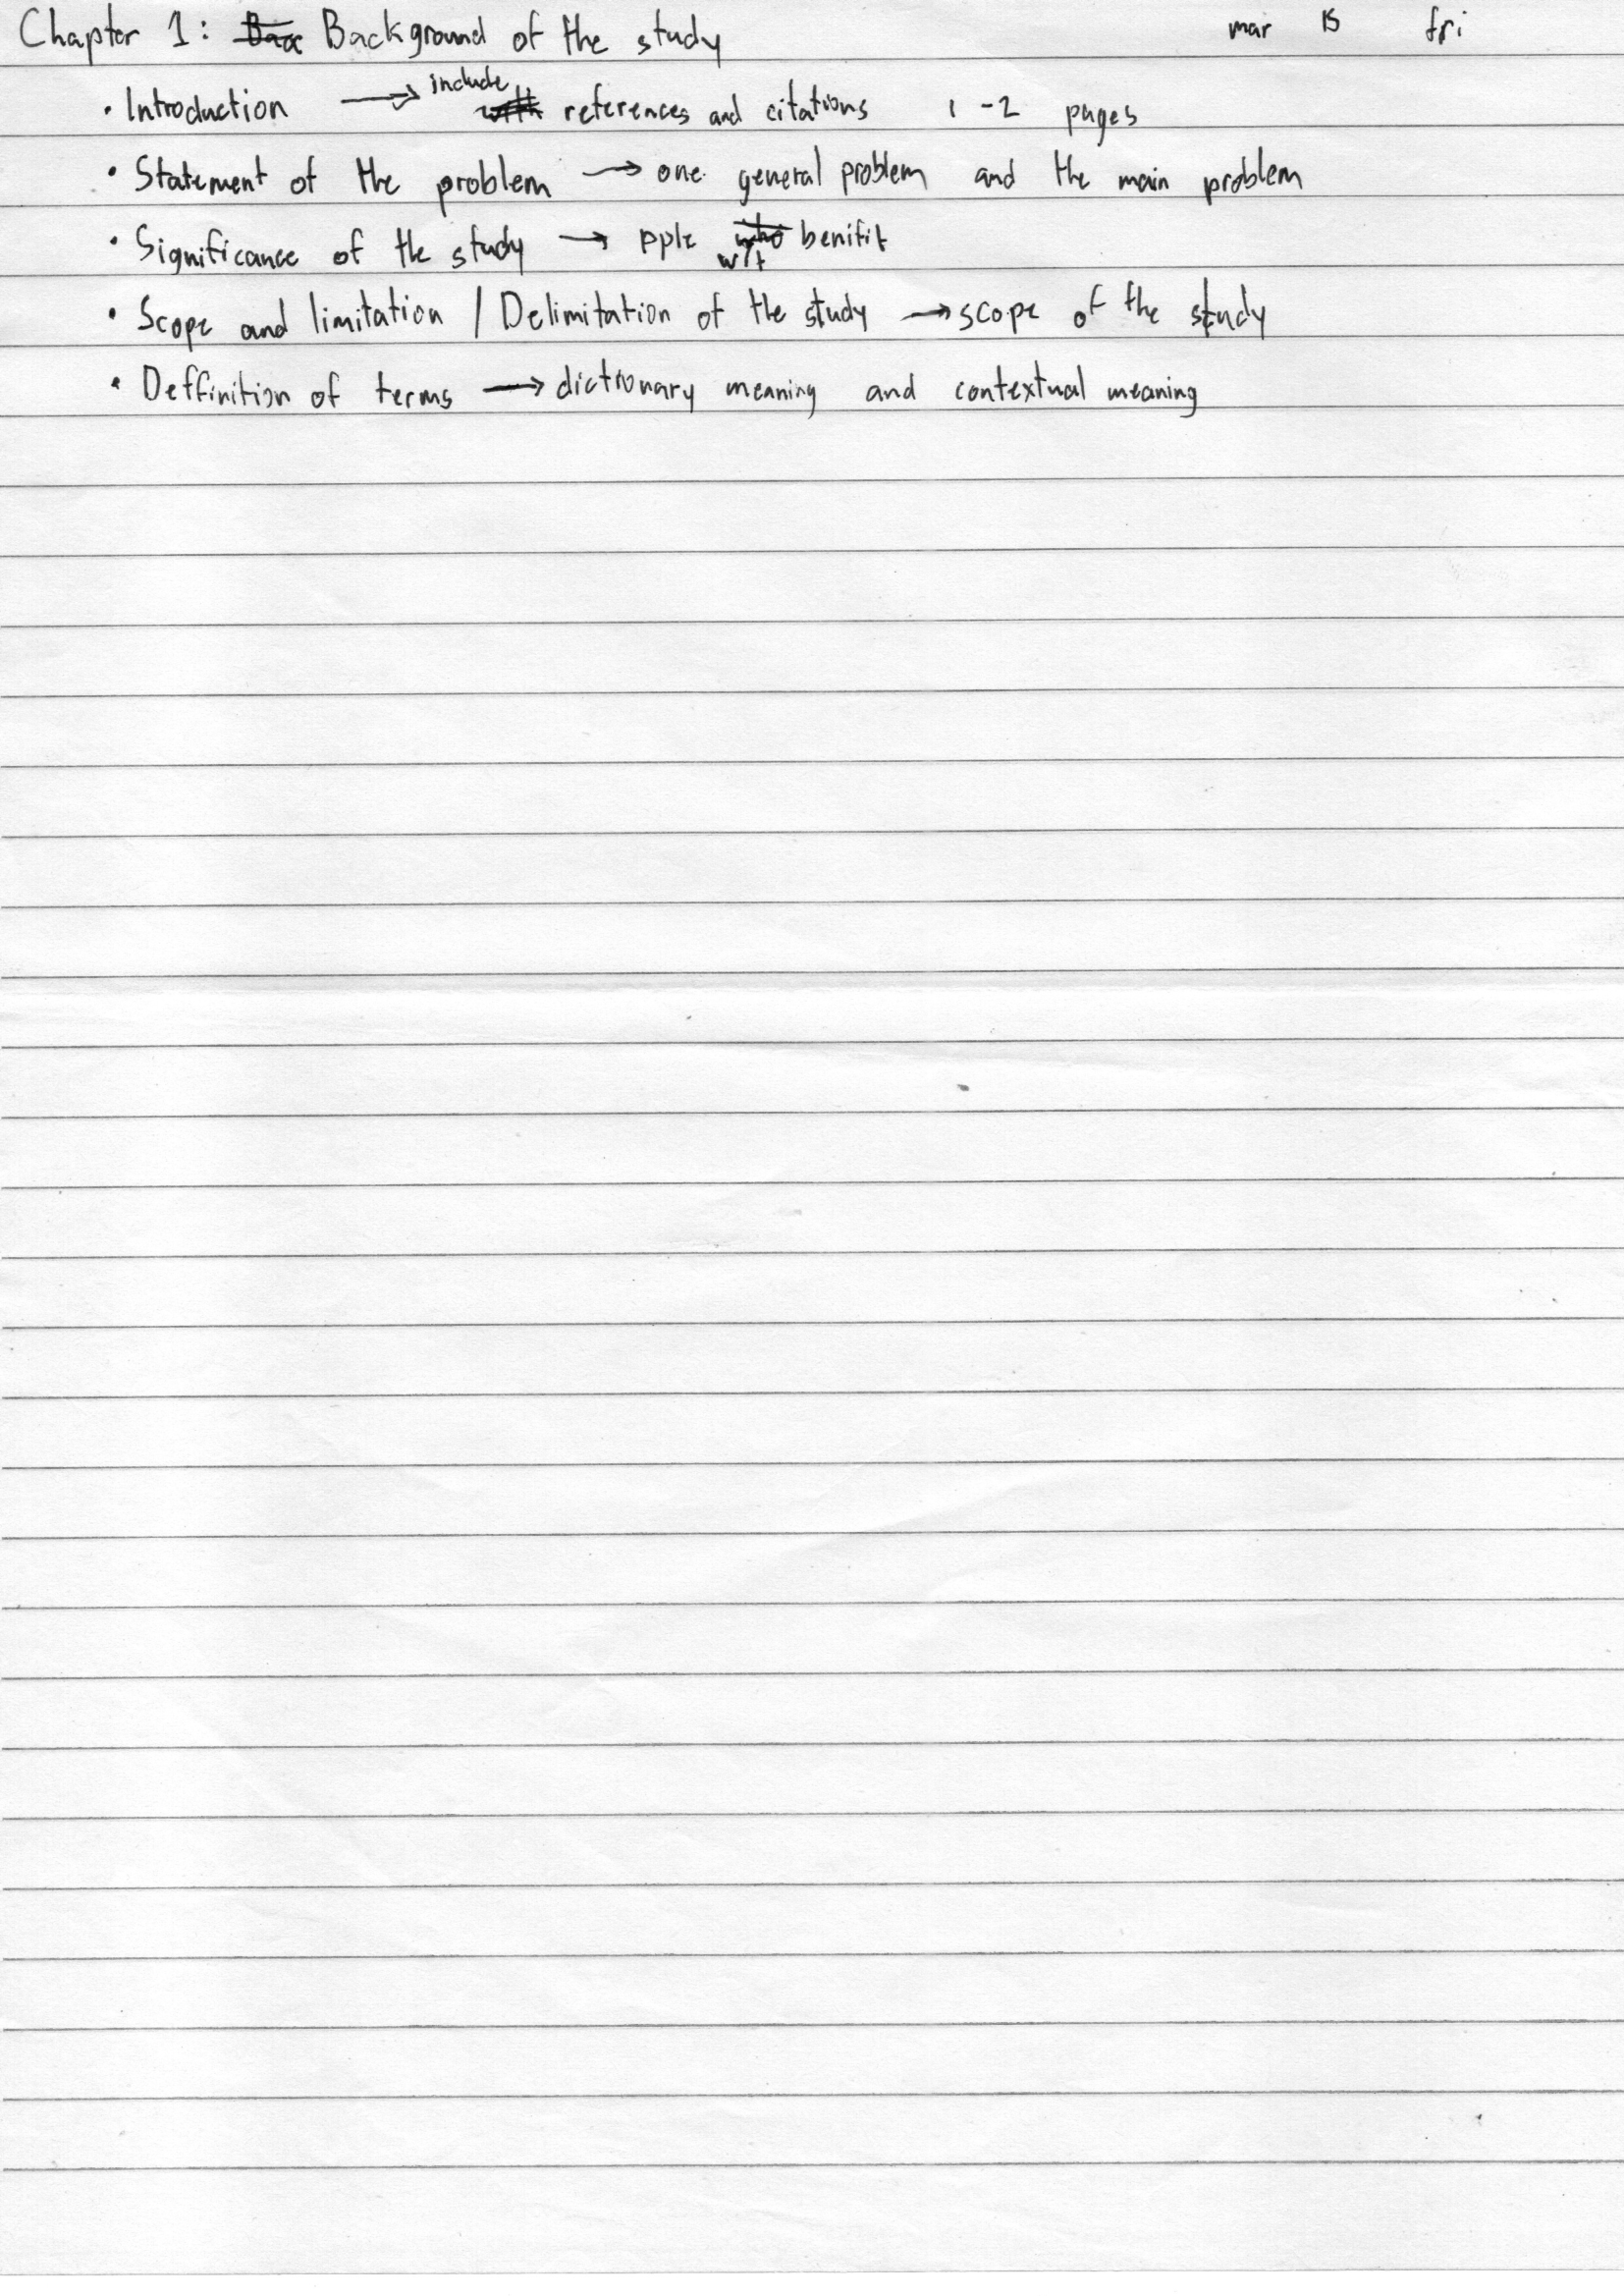 Chapter 1: Background of the study mar 15 fri
• Introduction → include references and citations 1-2 pages
• Statement of the problem → one general problem and the main problem
• Significance of the study → pple benifit
• Scope and limitation / Delimitation of the study → scope of the study
• Deffinition of terms → dictionary meaning and contextual meaning